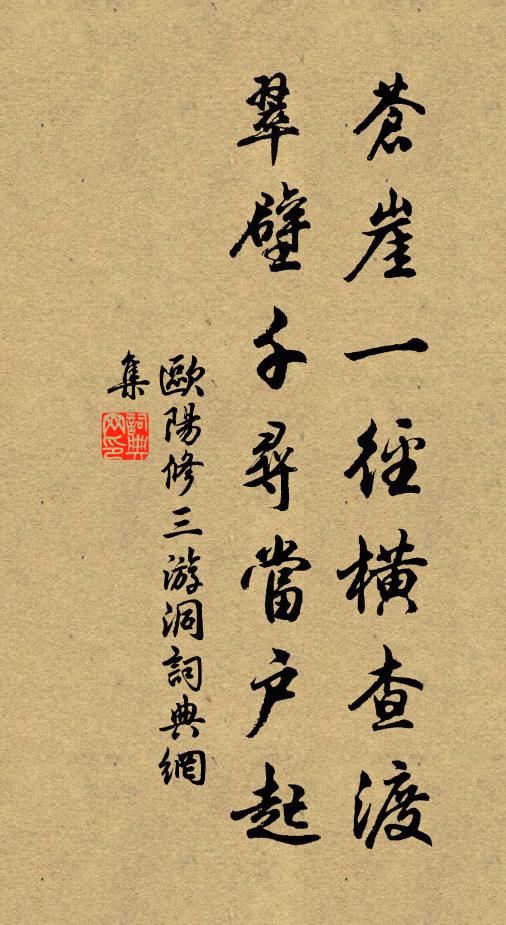 蒼崖一徑橫查渡
翠壁千尋當户起
歐陽修三游洞詞典網
集
詞典
网印